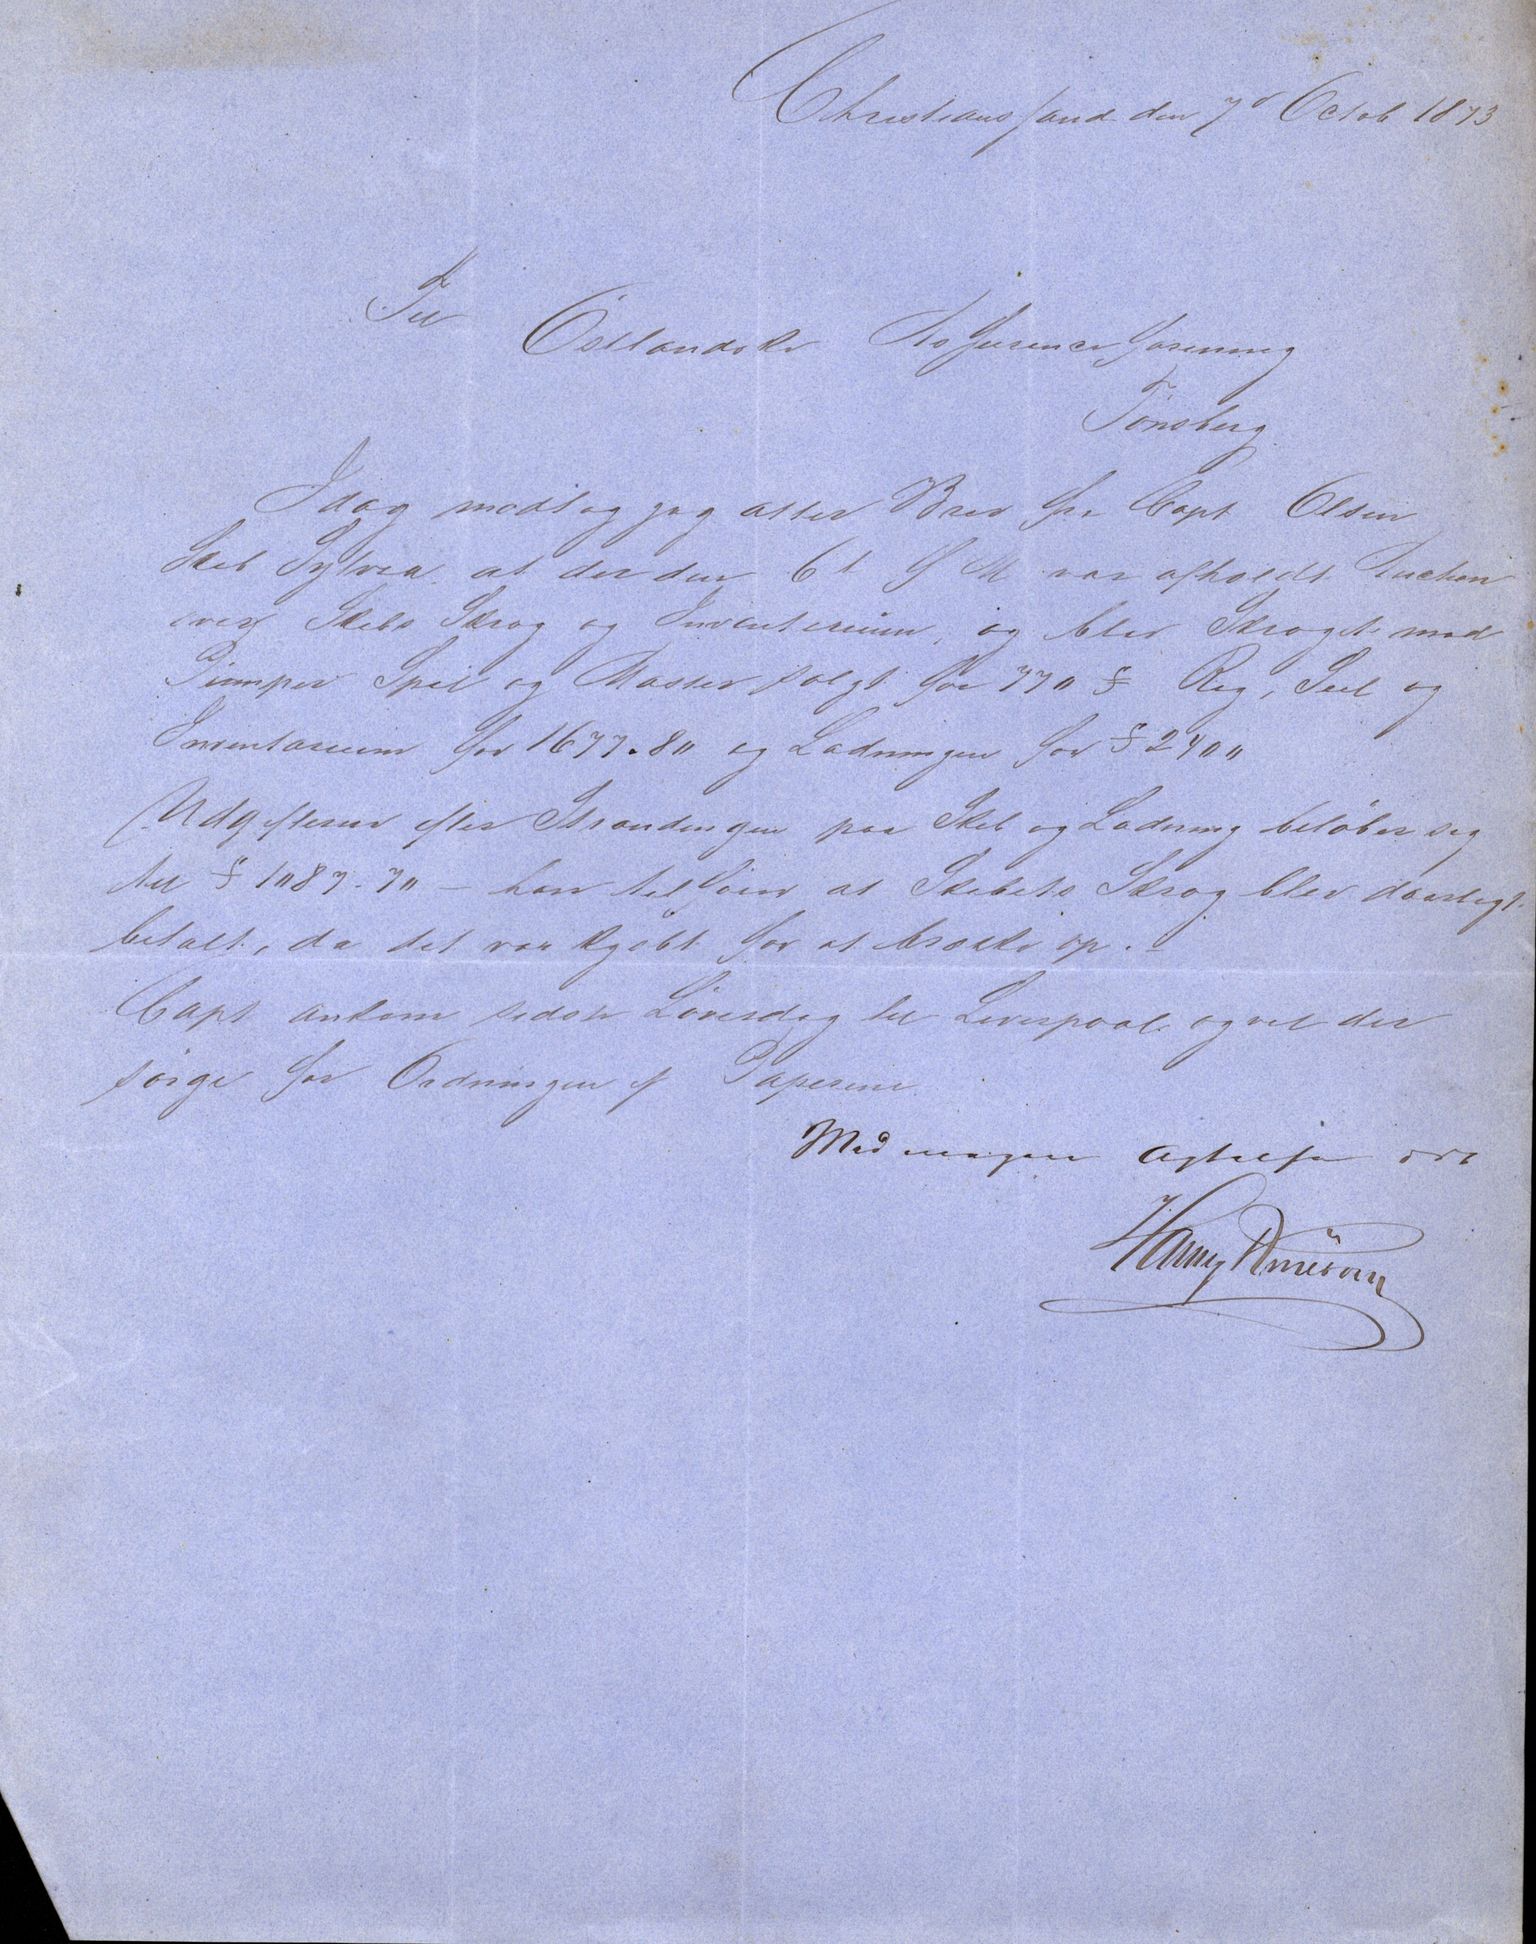 Christiansand den 7d Octob 1873
Til Östlandske Assurance forening
Tönsberg
Idag modtog jeg atter Brev fra Capt Olsen
Skib Sylvia at der den 6t d M var afholdt Auction
over Skibs Skrog og Inventarium, og blev Skroget med
Pumper Spil og Master solgt for 770 $ Rig, Seil og
Inventarium for 1677.80 og Ladningen for $ 2400
Udgifterne efter Strandingen paa Skib og Ladning beløber sig
til $ 1087.70 — han tilføier at Skibets Skrog blev daarligt
betalt, da det var kjöbt for at brække op. —
Capt ankom sidste Löverdag til Liverpool og vil der
sörge for Ordningen af Papirerne
Med megen Agtelse